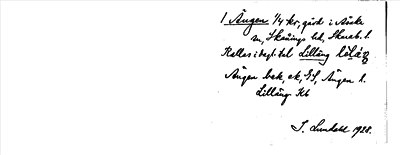 1 Ängen 1/4 kr, gård i Aske
sn, Skånings hd, Skarab. l.
Kallas i dagl. tal Lilläng
Ängen bek, ek, GS, Ängen k.
Lilläng Kb
J. Lundahl 1928.